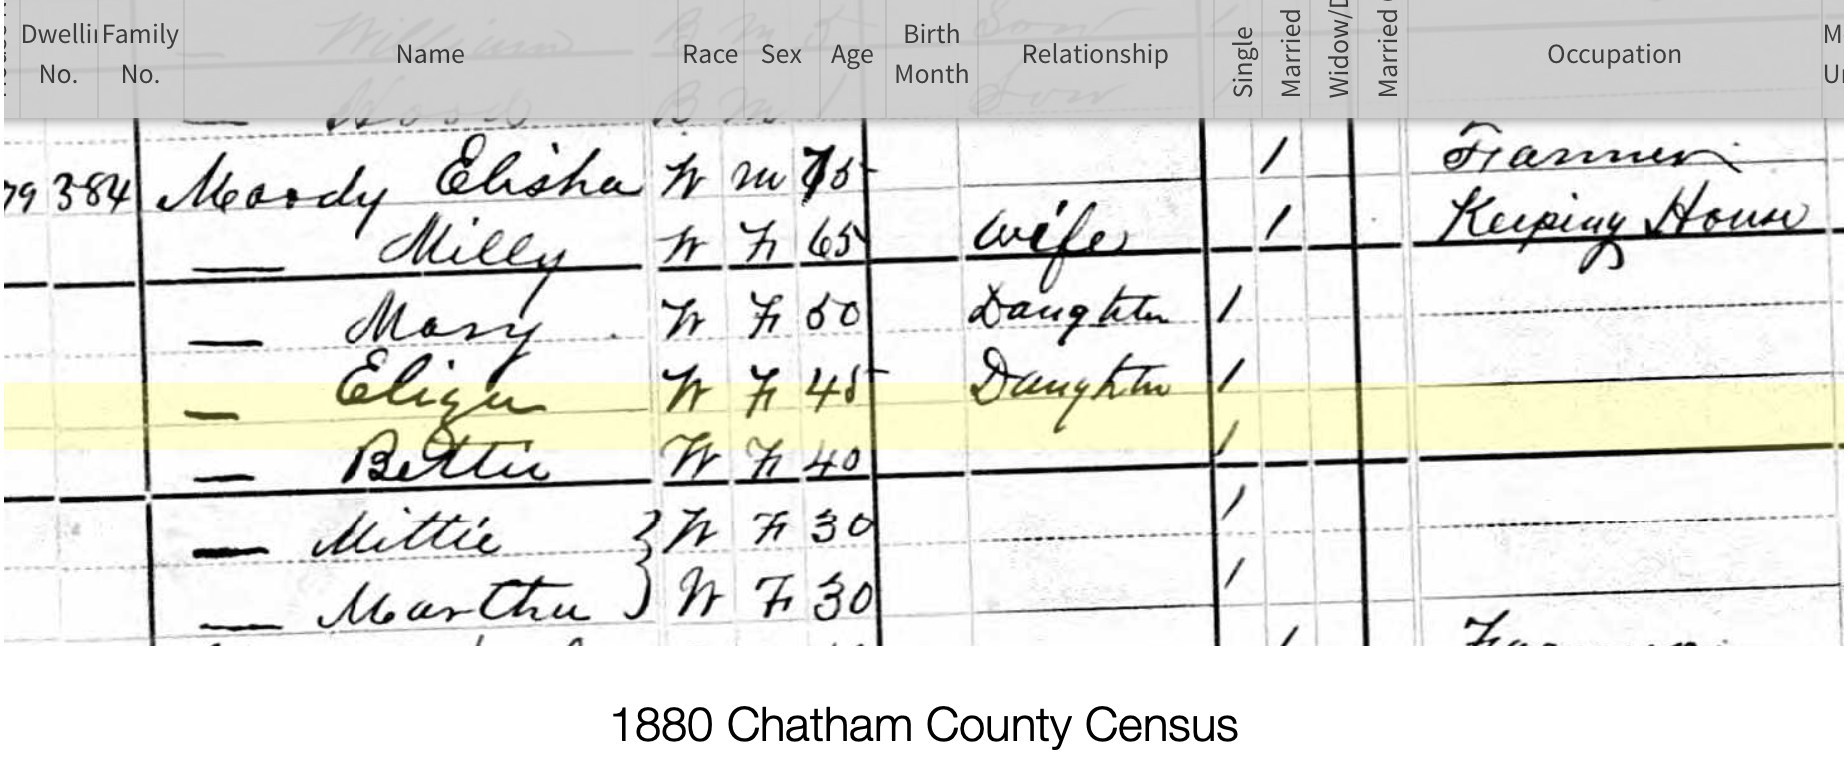 Dwellin Family Name Race Sex Age Birth Month Relationship Single Married Widow/D Married Occupation M
No. No. Ur
William B M 5 Son
B M 1 Son
79 384 Moody Elisha W M 75 1 Farmer
— Milly W F 65 Wife 1 Keeping House
— Mary W F 50 Daughter 1
— Eliza W F 45 Daughter 1
— Bettie W F 40 1
— Mittie } W F 30 1
— Martha } W F 30 1
1880 Chatham County Census